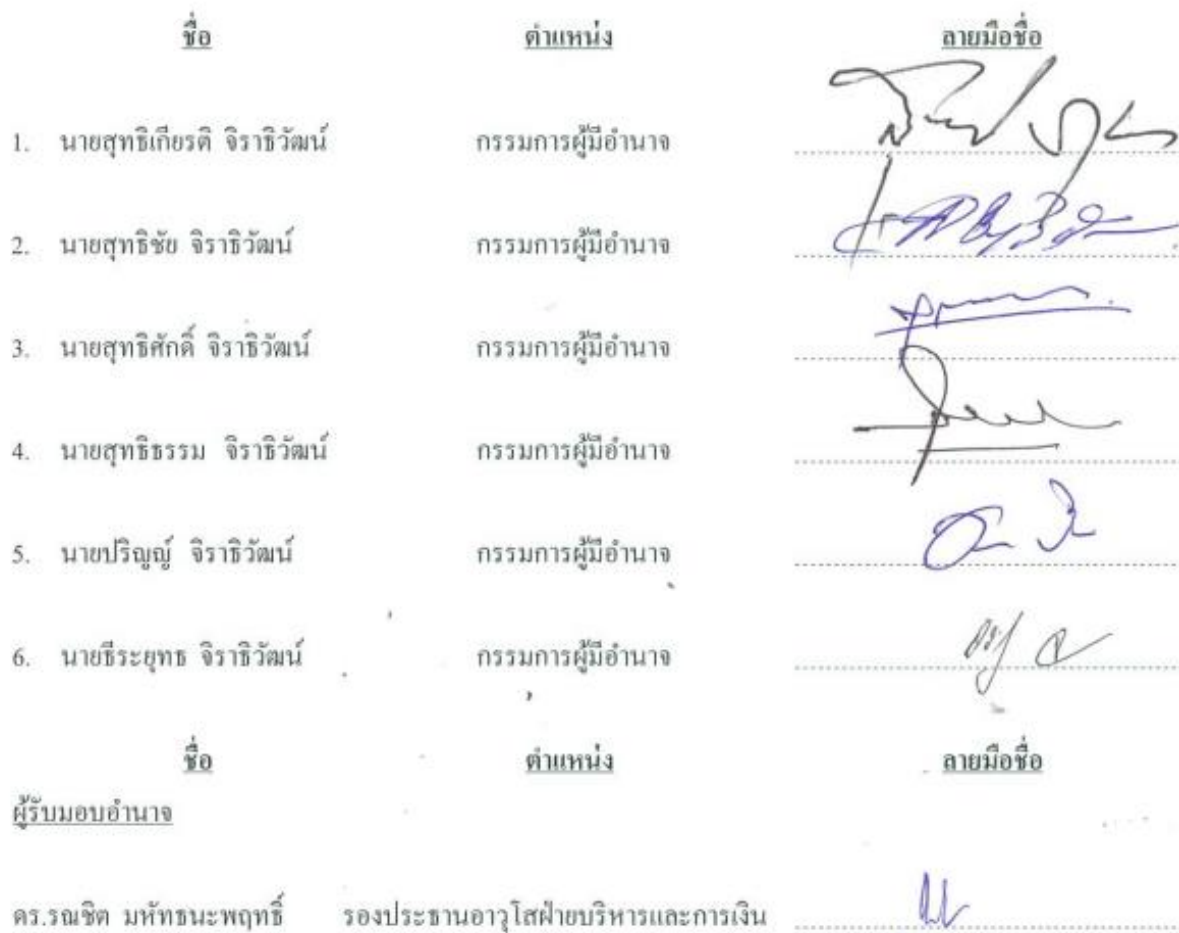 ชื่อ ตำแหน่ง ลายมือชื่อ
1. นายสุทธิเกียรติ จิราธิวัฒน์ กรรมการผู้มีอำนาจ
2. นายสุทธิชัย จิราธิวัฒน์ กรรมการผู้มีอำนาจ
3. นายสุทธิศักดิ์ จิราธิวัฒน์ กรรมการผู้มีอำนาจ
4. นายสุทธิธรรม จิราธิวัฒน์ กรรมการผู้มีอำนาจ
5. นายปริญญ์ จิราธิวัฒน์ กรรมการผู้มีอำนาจ
6. นายธีระยุทธ จิราธิวัฒน์ กรรมการผู้มีอำนาจ
ชื่อ ตำแหน่ง ลายมือชื่อ
ผู้รับมอบอำนาจ
ดร.รณชิต มหัทธนะพฤทธิ์ รองประธานอาวุโสฝ่ายบริหารและการเงิน